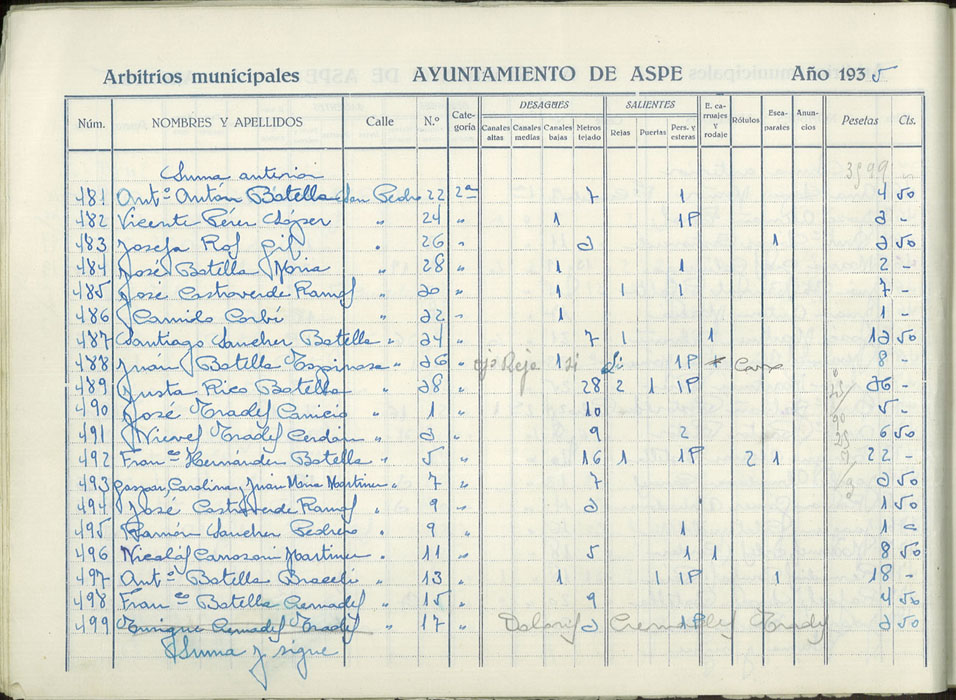 Arbitrios municipales AYUNTAMIENTO DE ASPE Año 1935
Núm. NOMBRES Y APELLIDOS Calle N.º Categoría DESAGÜES Canales altas Canales medias Canales bajas Metros tejado SALIENTES Rejas Puertas Pers. y esteras E. carruajes y rodaje Rótulos Escaparates Anuncios Pesetas Cts.
Suma anterior
481 Ant.º Antón Botella San Pedro 22 2ª 7 1 4 50
482 Vicente Pérez López " 24 " 1 1P 2 -
483 Josefa Rof Gil " 26 " 2 1 2 50
484 José Botella Moria " 28 " 1 1 2 -
485 José Castroverde Ramof " 20 " 1 1 1 7 -
486 Camilo Corbí " 22 " 1 1 -
487 Santiago Sancher Botella " 24 " 7 1 1 12 50
488 Juán Botella Espinosa " 26 " Reja 1 si 1P 8 -
489 Justa Rico Botella " 28 " 28 2 1 1P 26 -
490 José Tradef Canicio " 1 " 10 5 -
491 Nievef Tradef Cerdán " 2 " 9 2 6 50
492 Fran.co Hernánder Botella " 5 " 16 1 1P 2 1 22 -
493 Gaspar, Carolina y Juan Mira Martiner " 7 " 7 2 50
494 José Castroverde Ramof " 9 " 2 1 50
495 Ramón Sancher Pedrero " 9 " 1 1 -
496 Nicoláf Martiner " 11 " 5 1 1 8 50
497 Ant.º Botella " 13 " 1 1 1P 1 18 -
498 Fran.co Botella Cremadef " 15 " 9 4 50
499 Enrique Cremadef Tradef " 17 " 2 1P 2 50
Suma y sigue